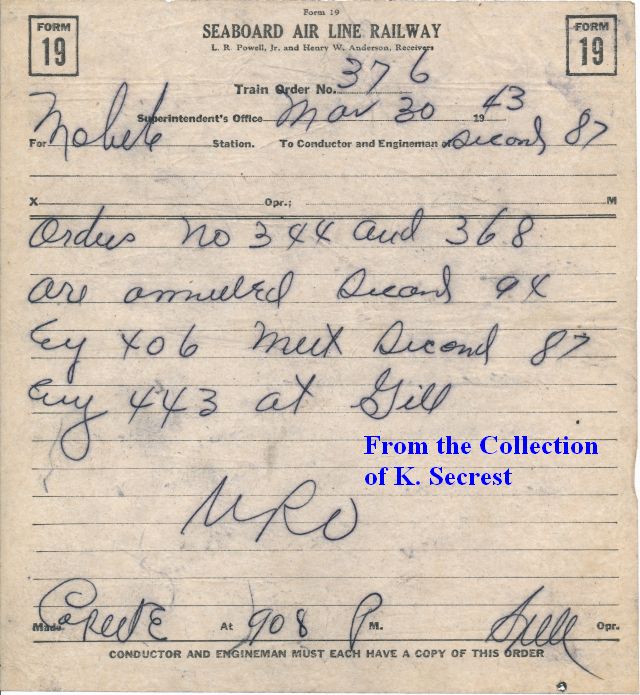 Form 19
FORM 19
SEABOARD AIR LINE RAILWAY
FORM 19
L. R. Powell, Jr. and Henry W. Anderson, Receivers
Train Order No. 376
Superintendent's Office Mar 30 1943
For Station. To Conductor and Engineman of Second 87
X Opr.; M
Orders No 344 and 368
are annulled Second 94
Eng 406 Meet Second 87
Eng 443 at Gill
From the Collection
of K. Secrest
Made At 908 P M. Opr.
CONDUCTOR AND ENGINEMAN MUST EACH HAVE A COPY OF THIS ORDER